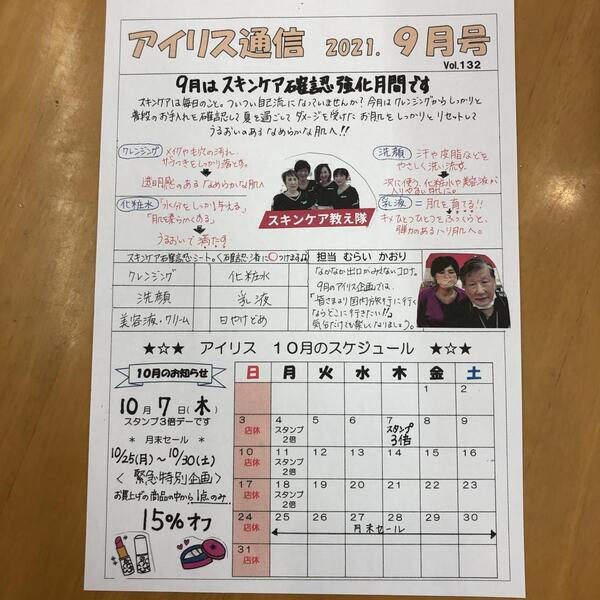 アイリス通信 2021. 9月号
Vol.132
9月はスキンケア確認強化月間です
スキンケアは毎日のこと。ついつい自流になっていませんか？今月はクレンジングからしっかりと
普段のお手入れを確認して夏を過ごしてダメージを受けたお肌をしっかりとリセットして
うるおいのあるなめらかな肌へ!!
クレンジング メイクや毛穴の汚れ、
ザラつきをしっかり落とす。
透明感のあるなめらかな肌へ
化粧水 「水分をしっかり与える」
「肌を柔らかくする」
うるおいで満たす
スキンケア教え隊
洗顔 汗や皮脂などを
やさしく洗い流す。
次に使う、化粧水や美容液が
入りやすい肌に。
乳液 =肌を育てる!!
キメひとつひとつをふっくらと、
弾力のあるハリ肌へ。
スキンケア確認シート。<確認済に○つけますよ>
クレンジング 化粧水
洗顔 乳液
美容液・クリーム 日やけどめ
担当 むらい かおり
なかなか出口がみえないコロナ。
9月のアイリス企画では、
「皆さまより国内旅行に行く
ならどこに行きたい!!」
気分だけでも楽しくなりましょう。
★☆★ アイリス 10月のスケジュール ★☆★
10月のお知らせ
10月7日(木)
スタンプ3倍デーです
* 月末セール *
10/25(月)～10/30(土)
<緊急特別企画>
お買上げの商品の中から1点のみ
15%オフ
日 月 火 水 木 金 土
1 2
3 4 5 6 7 8 9
店休 スタンプ2倍 スタンプ3倍
10 11 12 13 14 15 16
店休 スタンプ2倍
17 18 19 20 21 22 23
店休 スタンプ2倍
24 25 26 27 28 29 30
店休 月末セール
31
店休